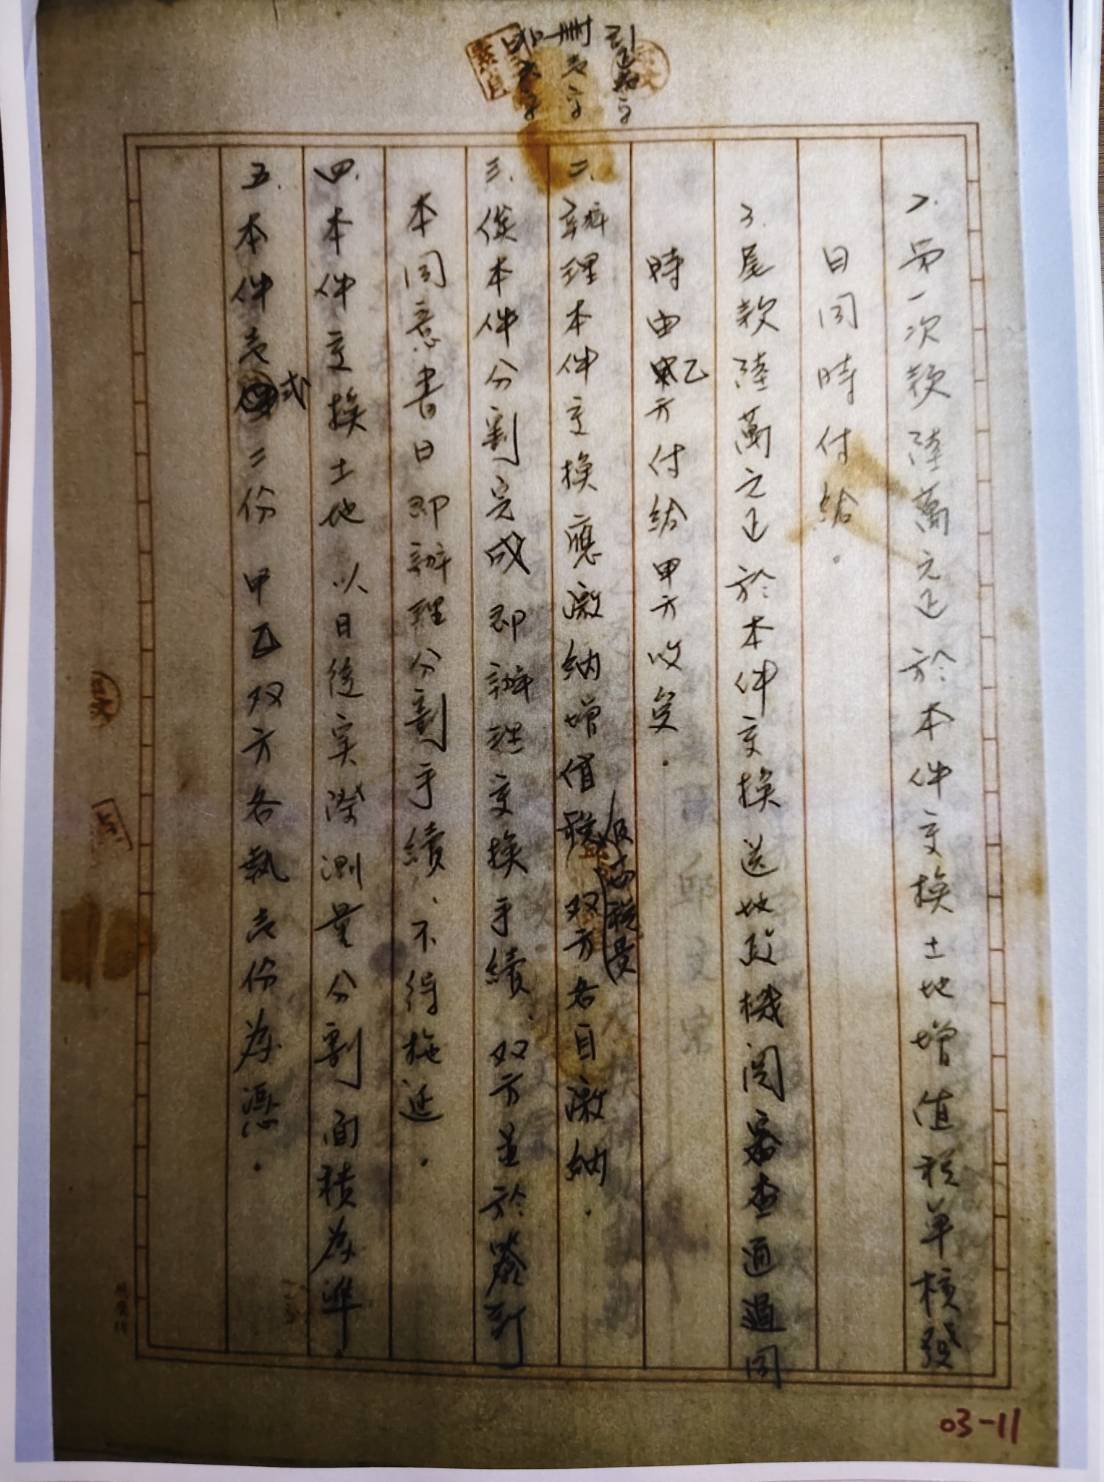 2. 第一次款陸萬元正於本件交換土地增值稅單核發
日同時付給.
3. 尾款陸萬元正於本件交換送地政機関審查通過同
時由乙方付給甲方收受.
二. 辦理本件交換應繳納增值稅双方各自繳納.
三. 俟本件分割完成即辦理交換手續,双方並於簽訂
本同意書日即辦理分割手續、不得拖延.
四. 本件交換土地以日後实際測量分割面積為準.
五. 本件壱式二份甲乙双方各執壱份為憑.
邱文宗
03-11